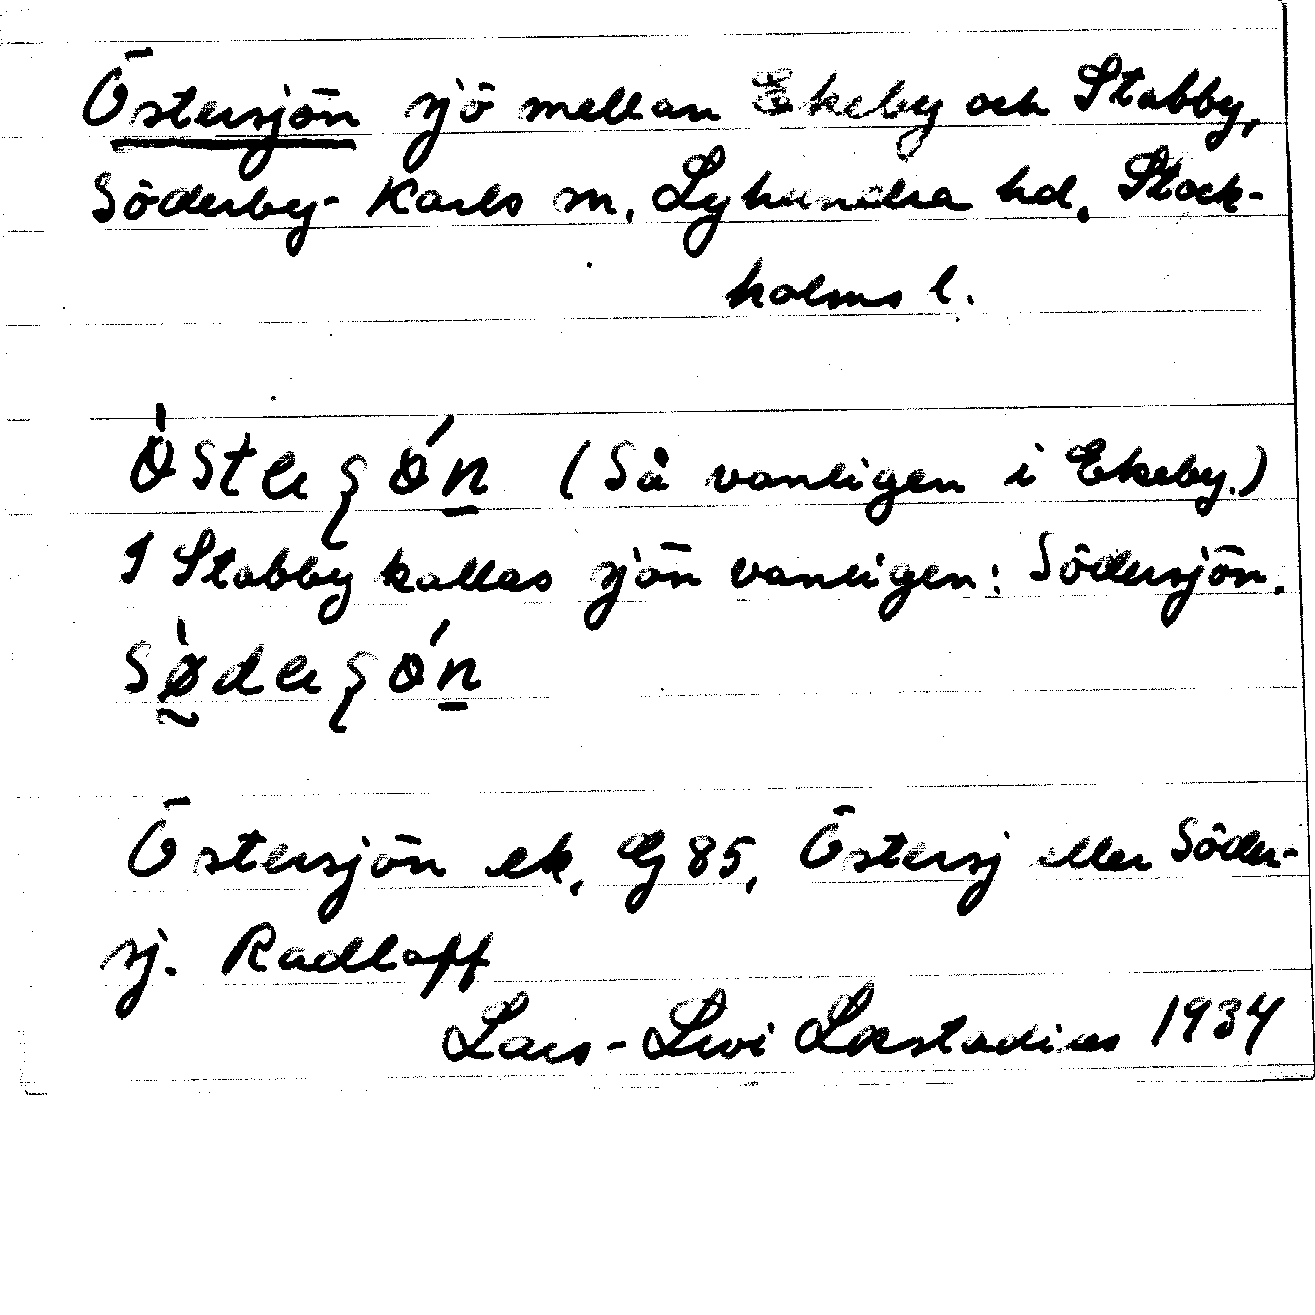 Östersjön sjö mellan Ekeby och Stabby,
Söderby-Karls sn, Lyhundra hd, Stock-
holms l.
(Så vanligen i Ekeby.)
I Stabby kallas sjön vanligen: Södersjön.
Östersjön ek, 85, Östersj eller Söder-
sj. Radloff
Lars-Levi Læstadius 1934